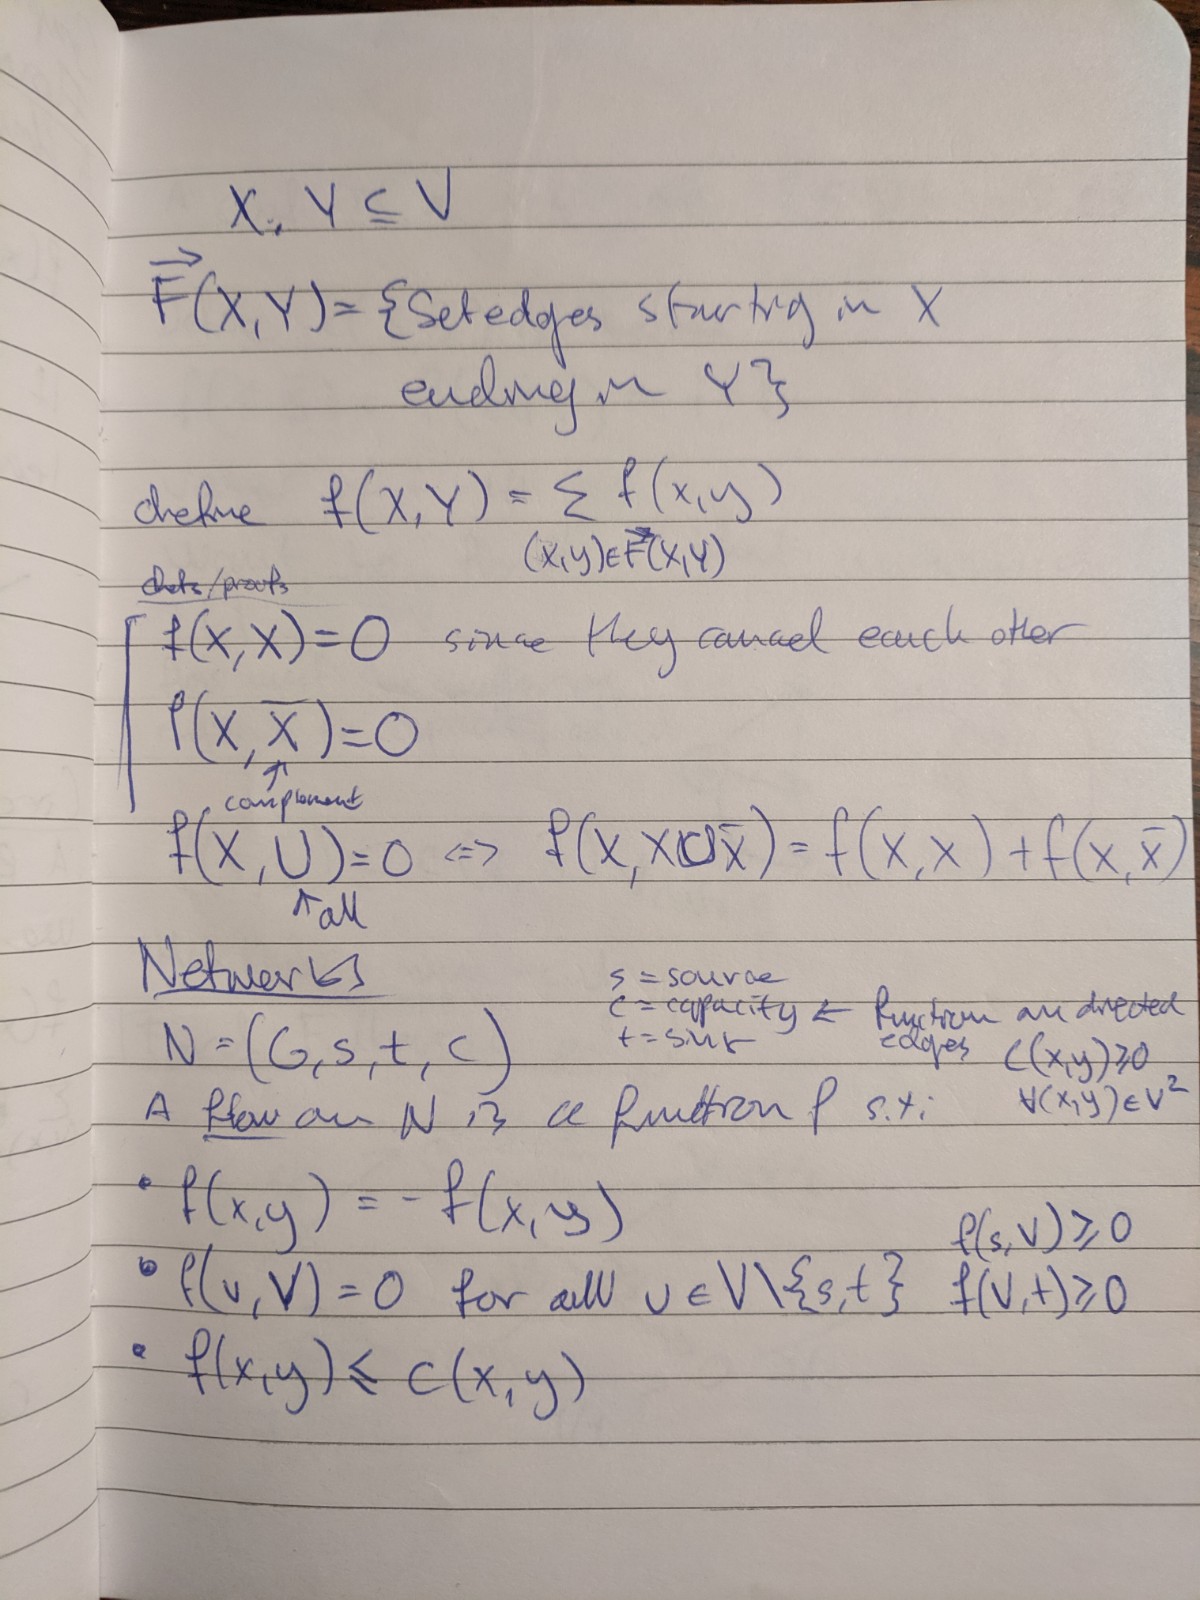 X, Y ⊆ V
F⃗(X,Y) = {Set edges starting in X
ending in Y}
define f(X,Y) = Σ f(x,y)
(x,y)∈F⃗(X,Y)
/proofs
f(X,X)=0 since they cancel each other
f(X,X̄)=0
↑
complement
f(X,U)=0 <=> f(X,X∪X̄) = f(X,X) + f(X,X̄)
↑ all
Networks
s = source
c = capacity ← function on directed edges
t = sink
c(x,y)≥0
∀(x,y)∈V²
N = (G, s, t, c)
A flow on N is a function f s.t:
• f(x,y) = -f(x,y)
• f(v,V) = 0 for all v ∈ V\{s,t}
f(s,V) ≥ 0
f(V,t) ≥ 0
• f(x,y) ≤ c(x,y)